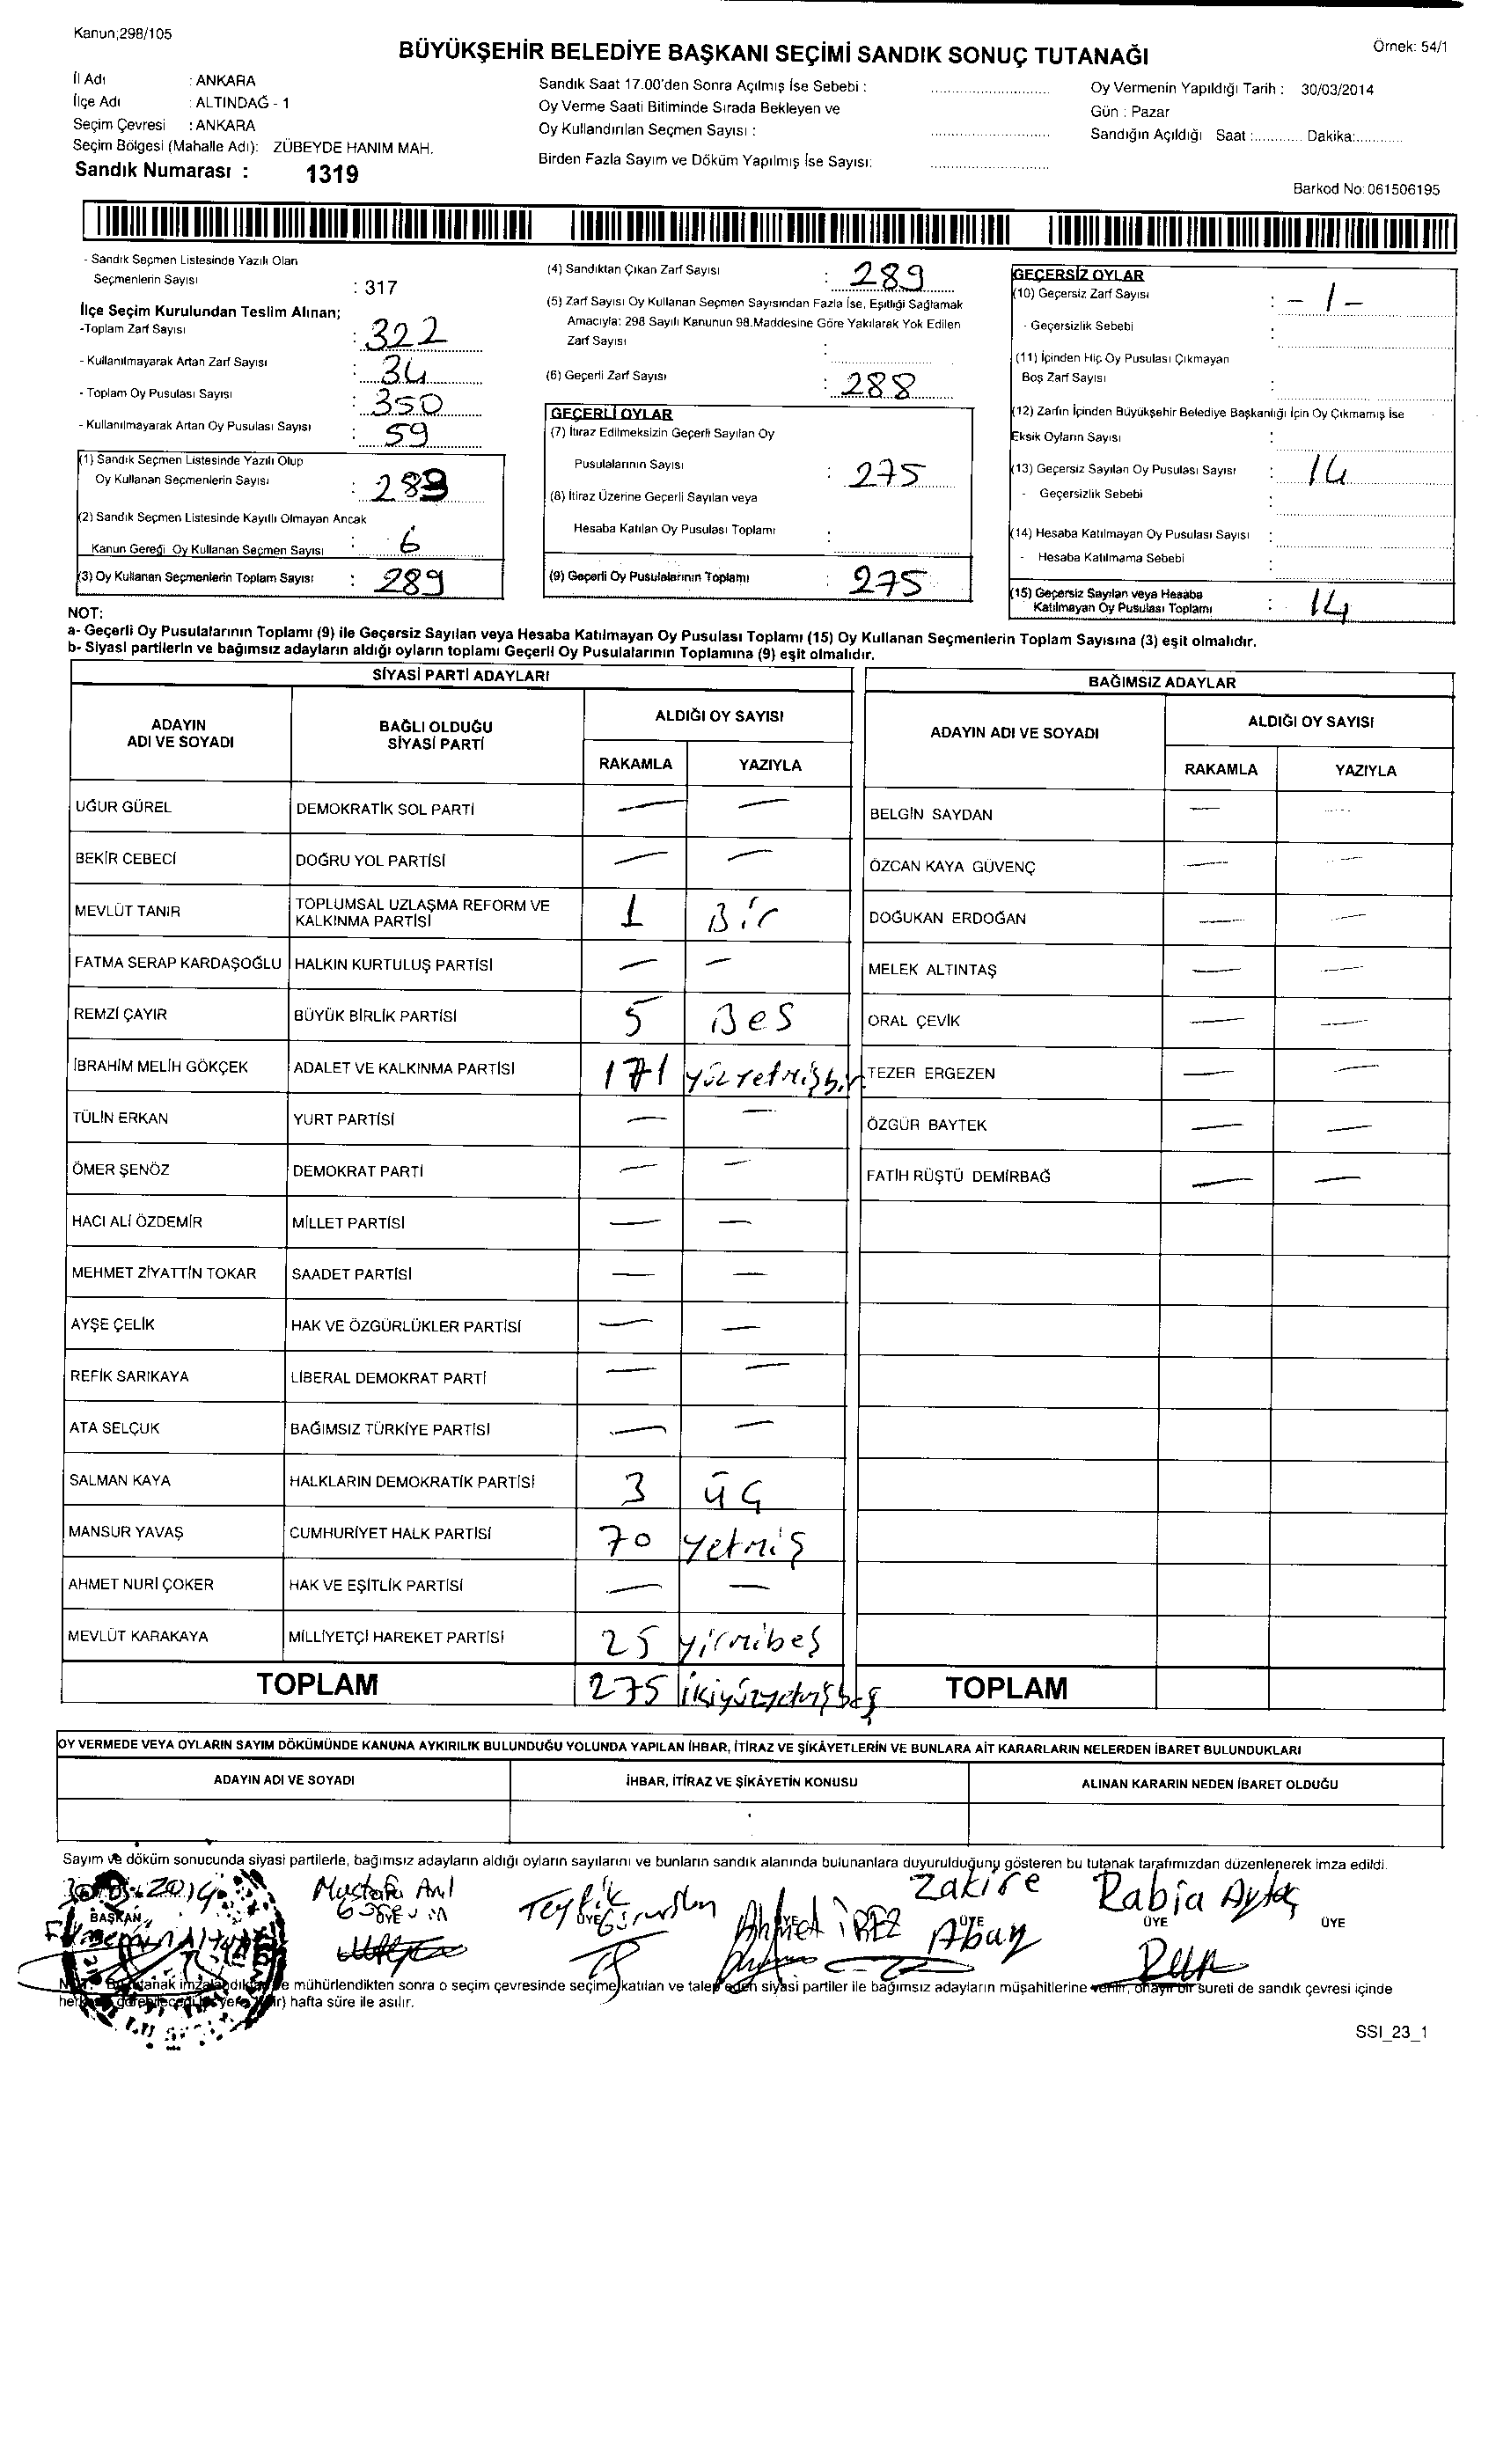 Kanun;298/105
BÜYÜKŞEHİR BELEDİYE BAŞKANI SEÇİMİ SANDIK SONUÇ TUTANAĞI
Örnek: 54/1
İl Adı : ANKARA
İlçe Adı : ALTINDAĞ - 1
Seçim Çevresi : ANKARA
Seçim Bölgesi (Mahalle Adı): ZÜBEYDE HANIM MAH.
Sandık Numarası : 1319
Sandık Saat 17.00'den Sonra Açılmış İse Sebebi :
Oy Verme Saati Bitiminde Sırada Bekleyen ve
Oy Kullandırılan Seçmen Sayısı :
Birden Fazla Sayım ve Döküm Yapılmış İse Sayısı:
Oy Vermenin Yapıldığı Tarih : 30/03/2014
Gün : Pazar
Sandığın Açıldığı Saat :............ Dakika:............
Barkod No:061506195
- Sandık Seçmen Listesinde Yazılı Olan
Seçmenlerin Sayısı : 317
İlçe Seçim Kurulundan Teslim Alınan;
-Toplam Zarf Sayısı : 322
- Kullanılmayarak Artan Zarf Sayısı : 34
- Toplam Oy Pusulası Sayısı : 350
- Kullanılmayarak Artan Oy Pusulası Sayısı : 59
(1) Sandık Seçmen Listesinde Yazılı Olup
Oy Kullanan Seçmenlerin Sayısı :
(2) Sandık Seçmen Listesinde Kayıtlı Olmayan Ancak
Kanun Gereği Oy Kullanan Seçmen Sayısı : 6
(3) Oy Kullanan Seçmenlerin Toplam Sayısı : 289
(4) Sandıktan Çıkan Zarf Sayısı : 289
(5) Zarf Sayısı Oy Kullanan Seçmen Sayısından Fazla İse, Eşitliği Sağlamak
Amacıyla: 298 Sayılı Kanunun 98.Maddesine Göre Yakılarak Yok Edilen
Zarf Sayısı :
(6) Geçerli Zarf Sayısı : 288
GEÇERLİ OYLAR
(7) İtiraz Edilmeksizin Geçerli Sayılan Oy
Pusulalarının Sayısı : 275
(8) İtiraz Üzerine Geçerli Sayılan veya
Hesaba Katılan Oy Pusulası Toplamı :
(9) Geçerli Oy Pusulalarının Toplamı : 275
GEÇERSİZ OYLAR
(10) Geçersiz Zarf Sayısı : - 1 -
- Geçersizlik Sebebi :
(11) İçinden Hiç Oy Pusulası Çıkmayan
Boş Zarf Sayısı :
(12) Zarfın İçinden Büyükşehir Belediye Başkanlığı İçin Oy Çıkmamış İse
Eksik Oyların Sayısı :
(13) Geçersiz Sayılan Oy Pusulası Sayısı : 14
- Geçersizlik Sebebi :
(14) Hesaba Katılmayan Oy Pusulası Sayısı :
- Hesaba Katılmama Sebebi :
(15) Geçersiz Sayılan veya Hesaba
Katılmayan Oy Pusulası Toplamı : 14
NOT:
a- Geçerli Oy Pusulalarının Toplamı (9) ile Geçersiz Sayılan veya Hesaba Katılmayan Oy Pusulası Toplamı (15) Oy Kullanan Seçmenlerin Toplam Sayısına (3) eşit olmalıdır.
b- Siyasi partilerin ve bağımsız adayların aldığı oyların toplamı Geçerli Oy Pusulalarının Toplamına (9) eşit olmalıdır.
SİYASİ PARTİ ADAYLARI
ADAYIN ADI VE SOYADI BAĞLI OLDUĞU SİYASİ PARTİ ALDIĞI OY SAYISI
RAKAMLA YAZIYLA
UĞUR GÜREL DEMOKRATİK SOL PARTİ — —
BEKİR CEBECİ DOĞRU YOL PARTİSİ — —
MEVLÜT TANIR TOPLUMSAL UZLAŞMA REFORM VE KALKINMA PARTİSİ 1 Bir
FATMA SERAP KARDAŞOĞLU HALKIN KURTULUŞ PARTİSİ — —
REMZİ ÇAYIR BÜYÜK BİRLİK PARTİSİ 5 Bes
İBRAHİM MELİH GÖKÇEK ADALET VE KALKINMA PARTİSİ 171 yüzyetmişbir
TÜLİN ERKAN YURT PARTİSİ — —
ÖMER ŞENÖZ DEMOKRAT PARTİ — —
HACI ALİ ÖZDEMİR MİLLET PARTİSİ — —
MEHMET ZİYATTİN TOKAR SAADET PARTİSİ — —
AYŞE ÇELİK HAK VE ÖZGÜRLÜKLER PARTİSİ — —
REFİK SARIKAYA LİBERAL DEMOKRAT PARTİ — —
ATA SELÇUK BAĞIMSIZ TÜRKİYE PARTİSİ — —
SALMAN KAYA HALKLARIN DEMOKRATİK PARTİSİ 3 üç
MANSUR YAVAŞ CUMHURİYET HALK PARTİSİ 70 yetmiş
AHMET NURİ ÇOKER HAK VE EŞİTLİK PARTİSİ — —
MEVLÜT KARAKAYA MİLLİYETÇİ HAREKET PARTİSİ 25 yirmibeş
TOPLAM 275 ikiyüzyetmişbeş
BAĞIMSIZ ADAYLAR
ADAYIN ADI VE SOYADI ALDIĞI OY SAYISI
RAKAMLA YAZIYLA
BELGİN SAYDAN — —
ÖZCAN KAYA GÜVENÇ — —
DOĞUKAN ERDOĞAN — —
MELEK ALTINTAŞ — —
ORAL ÇEVİK — —
TEZER ERGEZEN — —
ÖZGÜR BAYTEK — —
FATİH RÜŞTÜ DEMİRBAĞ — —
TOPLAM
OY VERMEDE VEYA OYLARIN SAYIM DÖKÜMÜNDE KANUNA AYKIRILIK BULUNDUĞU YOLUNDA YAPILAN İHBAR, İTİRAZ VE ŞİKÂYETLERİN VE BUNLARA AİT KARARLARIN NELERDEN İBARET BULUNDUKLARI
ADAYIN ADI VE SOYADI İHBAR, İTİRAZ VE ŞİKÂYETİN KONUSU ALINAN KARARIN NEDEN İBARET OLDUĞU
Sayım ve döküm sonucunda siyasi partilerle, bağımsız adayların aldığı oyların sayılarını ve bunların sandık alanında bulunanlara duyurulduğunu gösteren bu tutanak tarafımızdan düzenlenerek imza edildi.
Mustafa Anıl Tevfik Ahmet Zakire Abay Rabia Aytaç
BAŞKAN ÜYE ÜYE ÜYE ÜYE ÜYE ÜYE
mühürlendikten sonra o seçim çevresinde seçime katılan ve talep eden siyasi partiler ile bağımsız adayların müşahitlerine verilir, onaylı bir sureti de sandık çevresi içinde
hafta süre ile asılır.
SSI_23_1